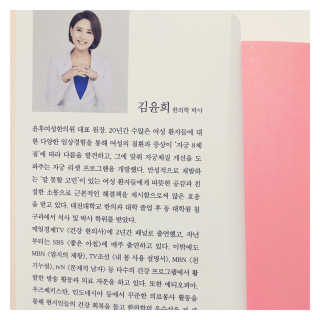 김윤희 한의학 박사
윤후여성한의원 대표 원장. 20년간 수많은 여성 환자들에 대
한 다양한 임상경험을 통해 여성의 질환과 증상이 '자궁 8체
질'에 따라 다름을 발견하고, 그에 맞춰 자궁체질 개선을 도
와주는 자궁 리셋 프로그램을 개발했다. 만성적으로 재발하
는 '말 못할 고민'이 있는 여성 환자들에게 따뜻한 공감과 친
절한 소통으로 근본적인 해결법을 제시함으로써 많은 호응
을 받고 있다. 대전대학교 한의과 대학 졸업 후 동 대학원 침
구과에서 석사 및 박사 학위를 받았다.
매일경제TV 〈건강 한의사〉에 2년간 패널로 출연했고, 작년
부터는 SBS 〈좋은 아침〉에 매주 출연하고 있다. 이밖에도
MBN 〈엄지의 제왕〉, TV조선 〈내 몸 사용 설명서〉, MBN 〈천
기누설〉, tvN 〈문제적 남자〉 등 다수의 건강 프로그램에서 활
발한 방송 활동과 의료 자문을 하고 있다. 또한 에티오피아,
우즈베키스탄, 인도네시아 등에서 꾸준한 의료봉사 활동을
통해 현지인들의 건강 회복을 돕고 한의학의